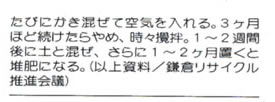 たびにかき混ぜて空気を入れる。3ヶ月
ほど続けたらやめ、時々攪拌。1～2週間
後に土と混ぜ、さらに1～2ヶ月置くと
堆肥になる。(以上資料／鎌倉リサイクル
推進会議)